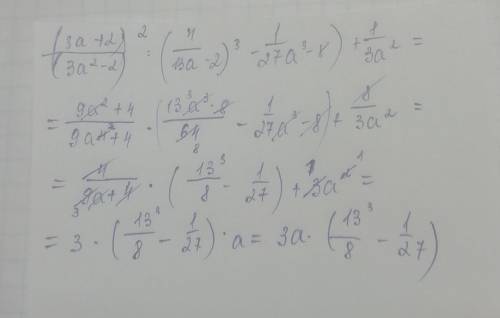 (3a+2)/(3a²-2)² : (4/(13a-2)³ - 1/(27a³-8)) + 8/3a² =
= (9a²+4)/(9a⁴²+4) · (13³a³·8/64 8 - 1/(27a³-8)) + 8/3a² =
= 4/(3 9a+4) · (13³/8 - 1/27) + 3a² ¹ =
= 3 · (13³/8 - 1/27) · a = 3a · (13³/8 - 1/27)